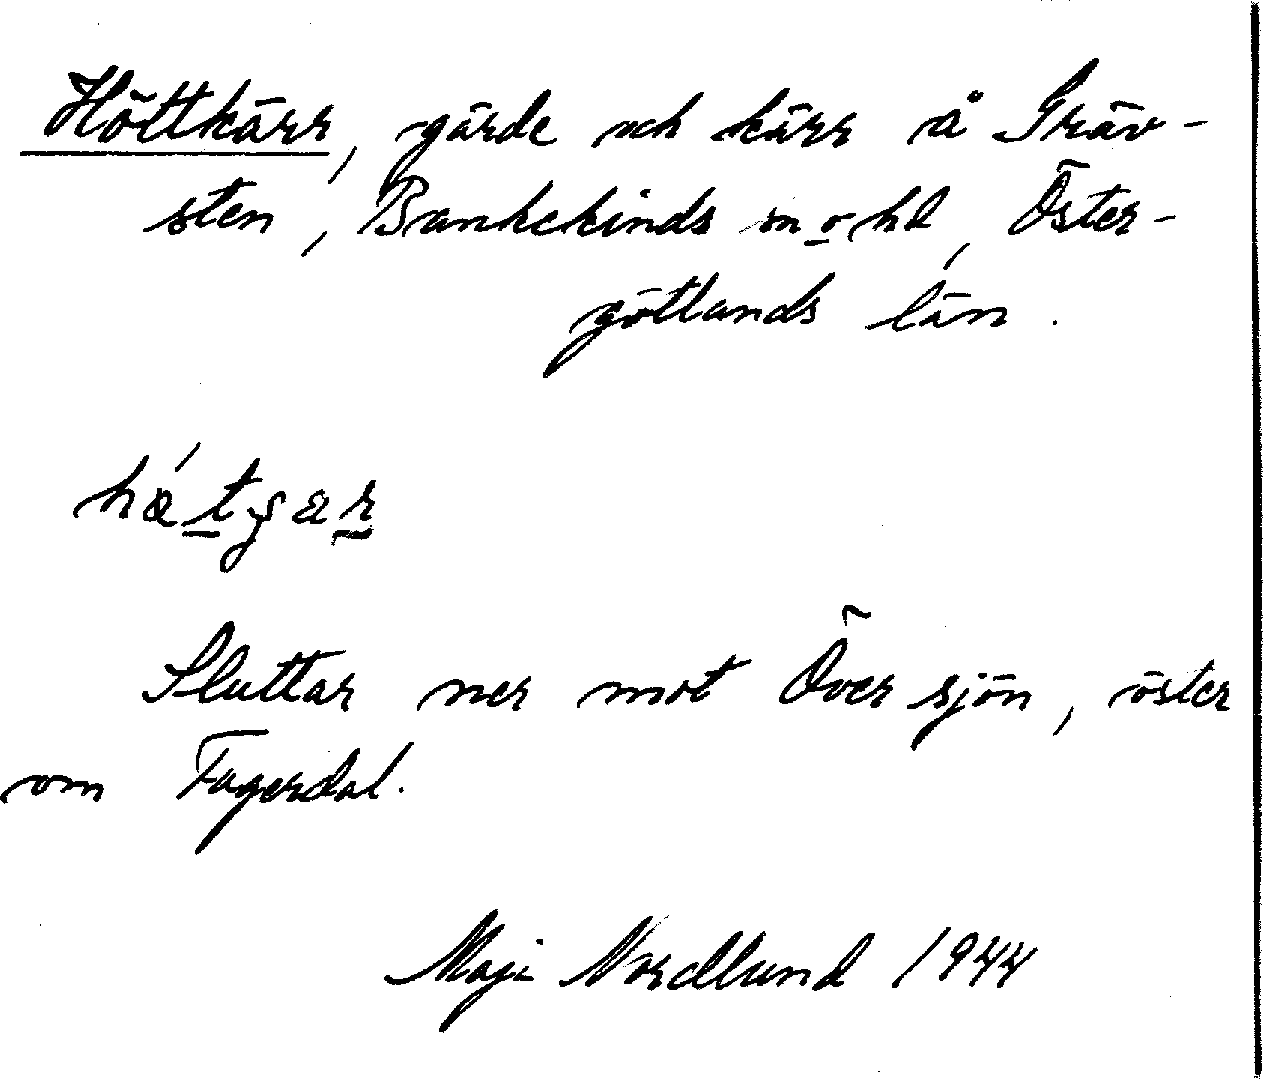 Höttkärr, gärde och kärr å Gräv-
sten, Bankekinds sn o hd, Öster-
götlands län.
Sluttar ner mot Översjön, öster
om Fagerdal.
Maji Nordlund 1944